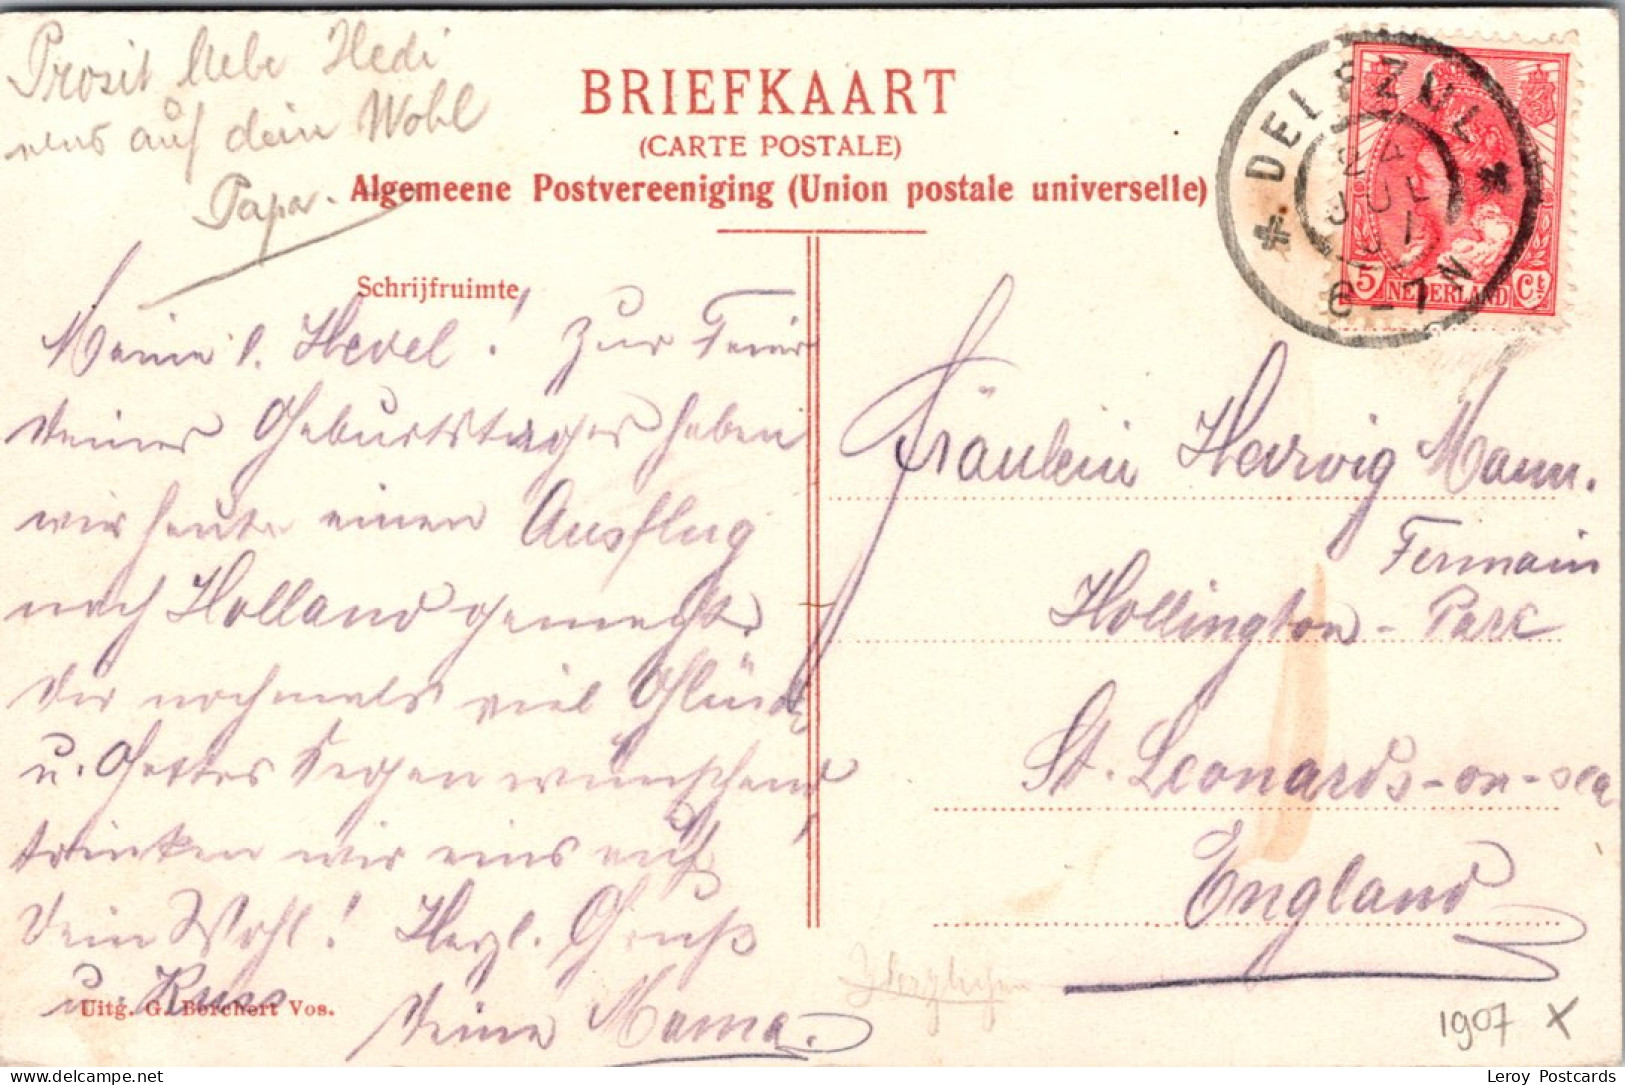 Prosit liebe Hedi
auf dein Wohl
Papa.
BRIEFKAART
(CARTE POSTALE)
Algemeene Postvereeniging (Union postale universelle)
DELFZIJL
24
JUL
07
6-7N
5 NEDERLAND Ct
Schrijfruimte
Meine l. Hedel! Zur Feier
Deines Geburtstages haben
wir heute einen Ausflug
nach Holland gemacht.
Dir nochmals viel Glück
u. Gottes Segen wünschend
trinken wir eins auf
Dein Wohl! Herzl. Gruß
u. Kuss Deine Mama.
Uitg. G. Borchert Vos.
Fräulein Hedwig Mann.
Fermain
Hollington-Park
St. Leonards-on-sea
England
Herzlichen
1907 X
Leroy Postcards